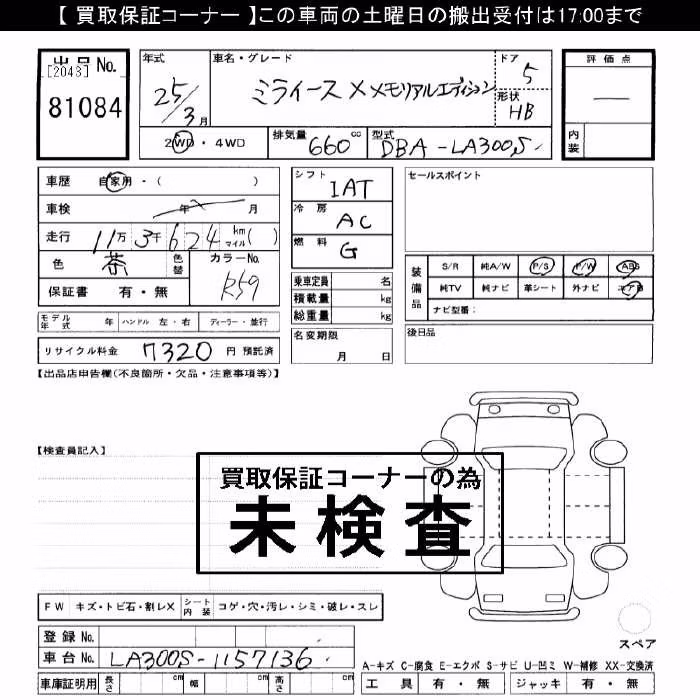 【 買取保証コーナー 】この車両の土曜日の搬出受付は17:00まで
出品 No.
[2043]
81084
年式
25/3月
車名・グレード
ミライース X メモリアルエディション
ドア
5
形状
HB
評価点
—
内装
2WD・4WD
排気量 660 cc
型式 DBA-LA300S
車歴 自家用・( )
車検 年 月
走行 11万 3千 624 km マイル ( )
色 茶 色替 カラーNo. R59
保証書 有・無
シフト IAT
冷房 AC
燃料 G
乗車定員 名
積載量 kg
総重量 kg
セールスポイント
装備品
S/R 純A/W P/S P/W ABS
純TV 純ナビ 革シート 外ナビ エアB
ナビ型番:
モデル年式 年 ハンドル 左・右 ディーラー・並行
名変期限
月 日
後日品
リサイクル料金 7320 円 預託済
【出品店申告欄(不良箇所・欠品・注意事項等)】
【検査員記入】
買取保証コーナーの為
未検査
FW キズ・トビ石・割レX
シート内装 コゲ・穴・汚レ・シミ・破レ・スレ
登録 No.
車台 No. LA300S-1157136
車庫証明用 長さ cm 幅 cm 高さ cm
スペア
A-キズ C-腐食 E-エクボ S-サビ U-凹ミ W-補修 XX-交換済
工具 有・無 ジャッキ 有・無